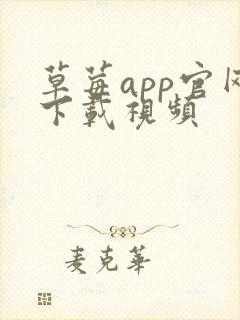 草莓app官网
下載視頻
麦克華